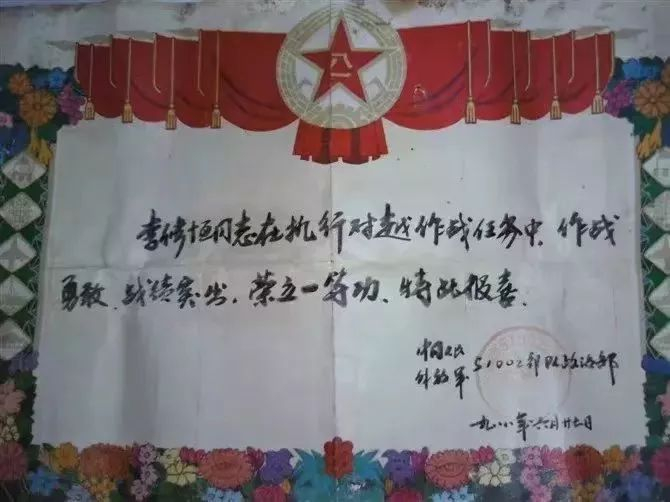 八一
李修恒同志在执行对越作战任务中、作战
勇敢、战绩突出、荣立一等功、特此报喜.
中国人民
解放军 51002部队政治部
一九八八年